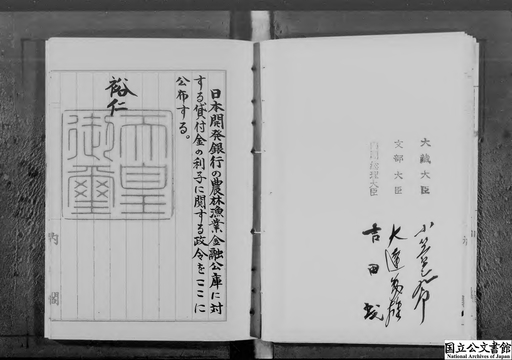 日本開発銀行の農林漁業金融公庫に対
する貸付金の利子に関する政令をここに
公布する。
裕仁
天皇
御璽
内閣
大蔵大臣
文部大臣
内閣総理大臣
小笠原三九郎
大達茂雄
吉田茂
国立公文書館
National Archives of Japan